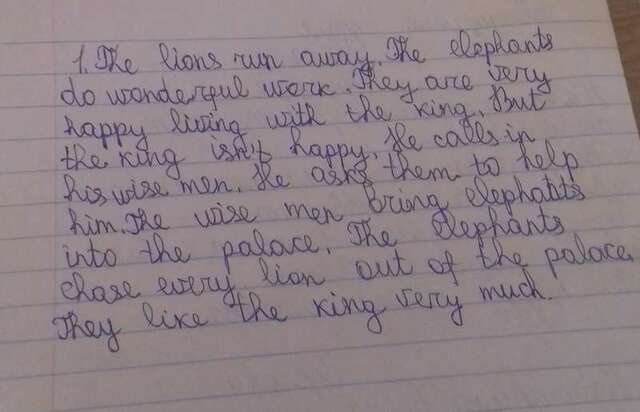 1. The lions run away. The elephants
do wonderful work. They are very
happy living with the king. But
the king isn't happy. He calls in
his wise men. He asks them to help
him. The wise men bring elephants
into the palace. The elephants
chase every lion out of the palace.
They like the king very much.